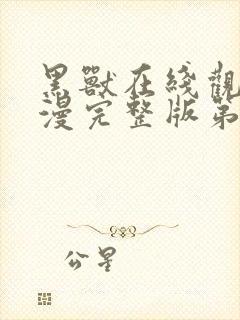 黑獸在綫觀
漫完整版第
公星